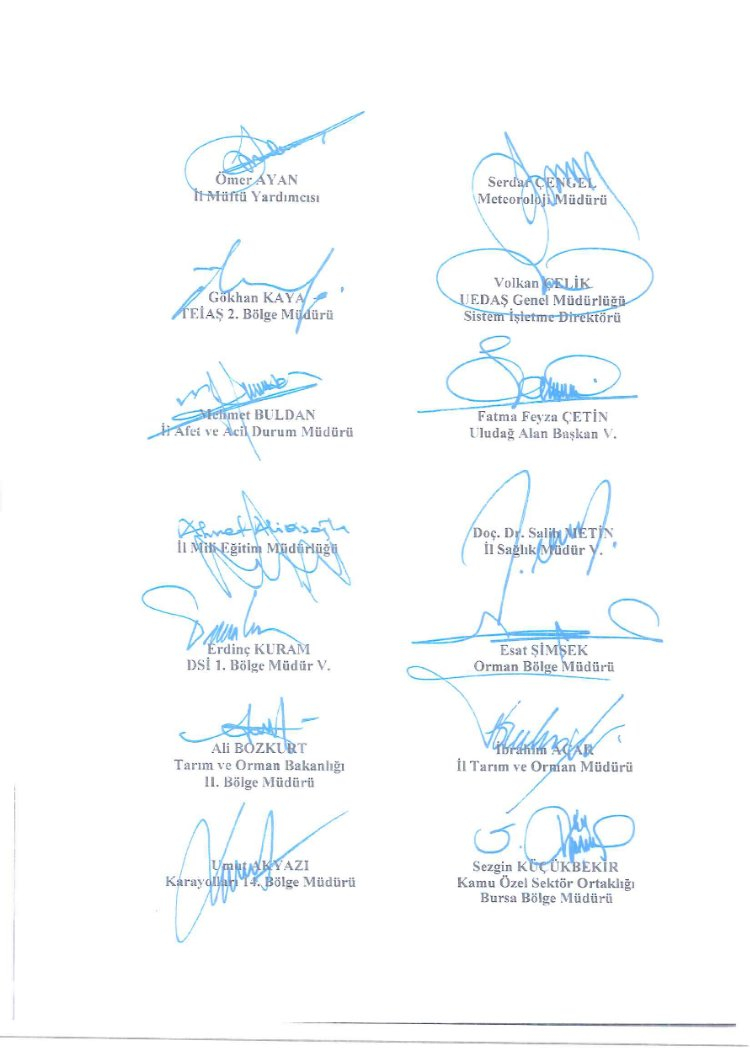 Ömer AYAN
İl Müftü Yardımcısı
Serdar ÇENGEL
Meteoroloji Müdürü
Gökhan KAYA
TEİAŞ 2. Bölge Müdürü
Volkan ÇELİK
UEDAŞ Genel Müdürlüğü
Sistem İşletme Direktörü
Mehmet BULDAN
İl Afet ve Acil Durum Müdürü
Fatma Feyza ÇETİN
Uludağ Alan Başkan V.
Ahmet Alireisoğlu
İl Milli Eğitim Müdürlüğü
Doç. Dr. Salih METİN
İl Sağlık Müdür V.
Erdinç KURAM
DSİ 1. Bölge Müdür V.
Esat ŞİMŞEK
Orman Bölge Müdürü
Ali BOZKURT
Tarım ve Orman Bakanlığı
II. Bölge Müdürü
İbrahim ACAR
İl Tarım ve Orman Müdürü
Umut AKYAZI
Karayolları 14. Bölge Müdürü
Sezgin KÜÇÜKBEKİR
Kamu Özel Sektör Ortaklığı
Bursa Bölge Müdürü